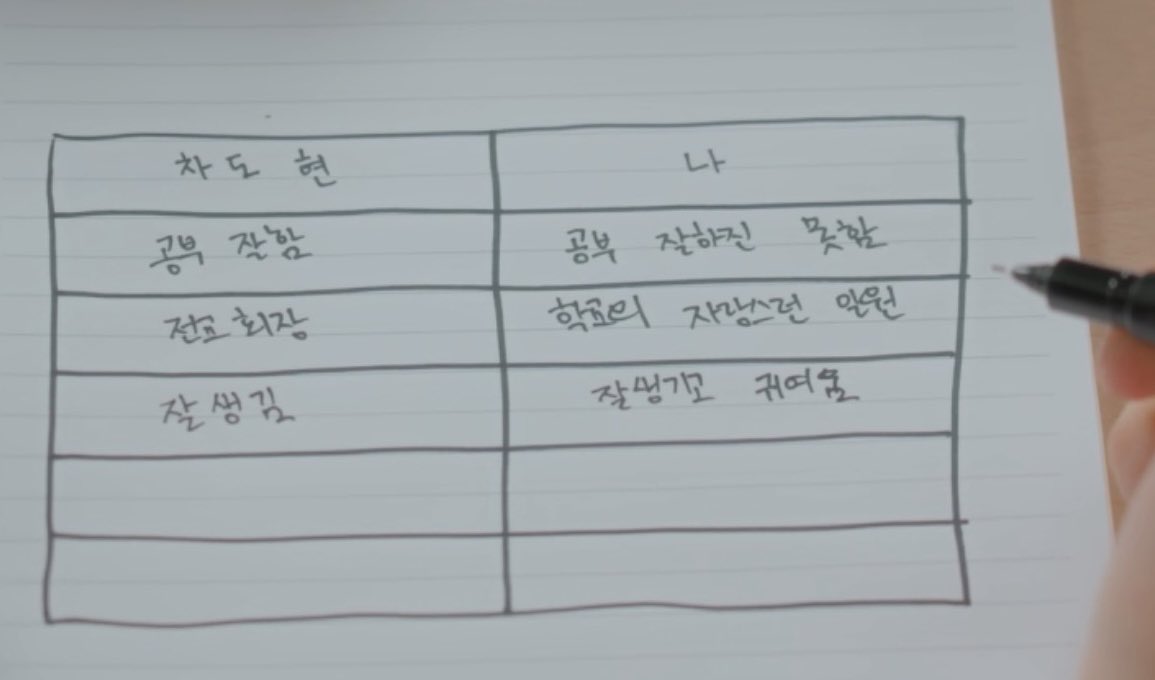 차도현 나
공부 잘함 공부 잘하진 못함
전교회장 학교의 자랑스런 일원
잘생김 잘생기고 귀여움